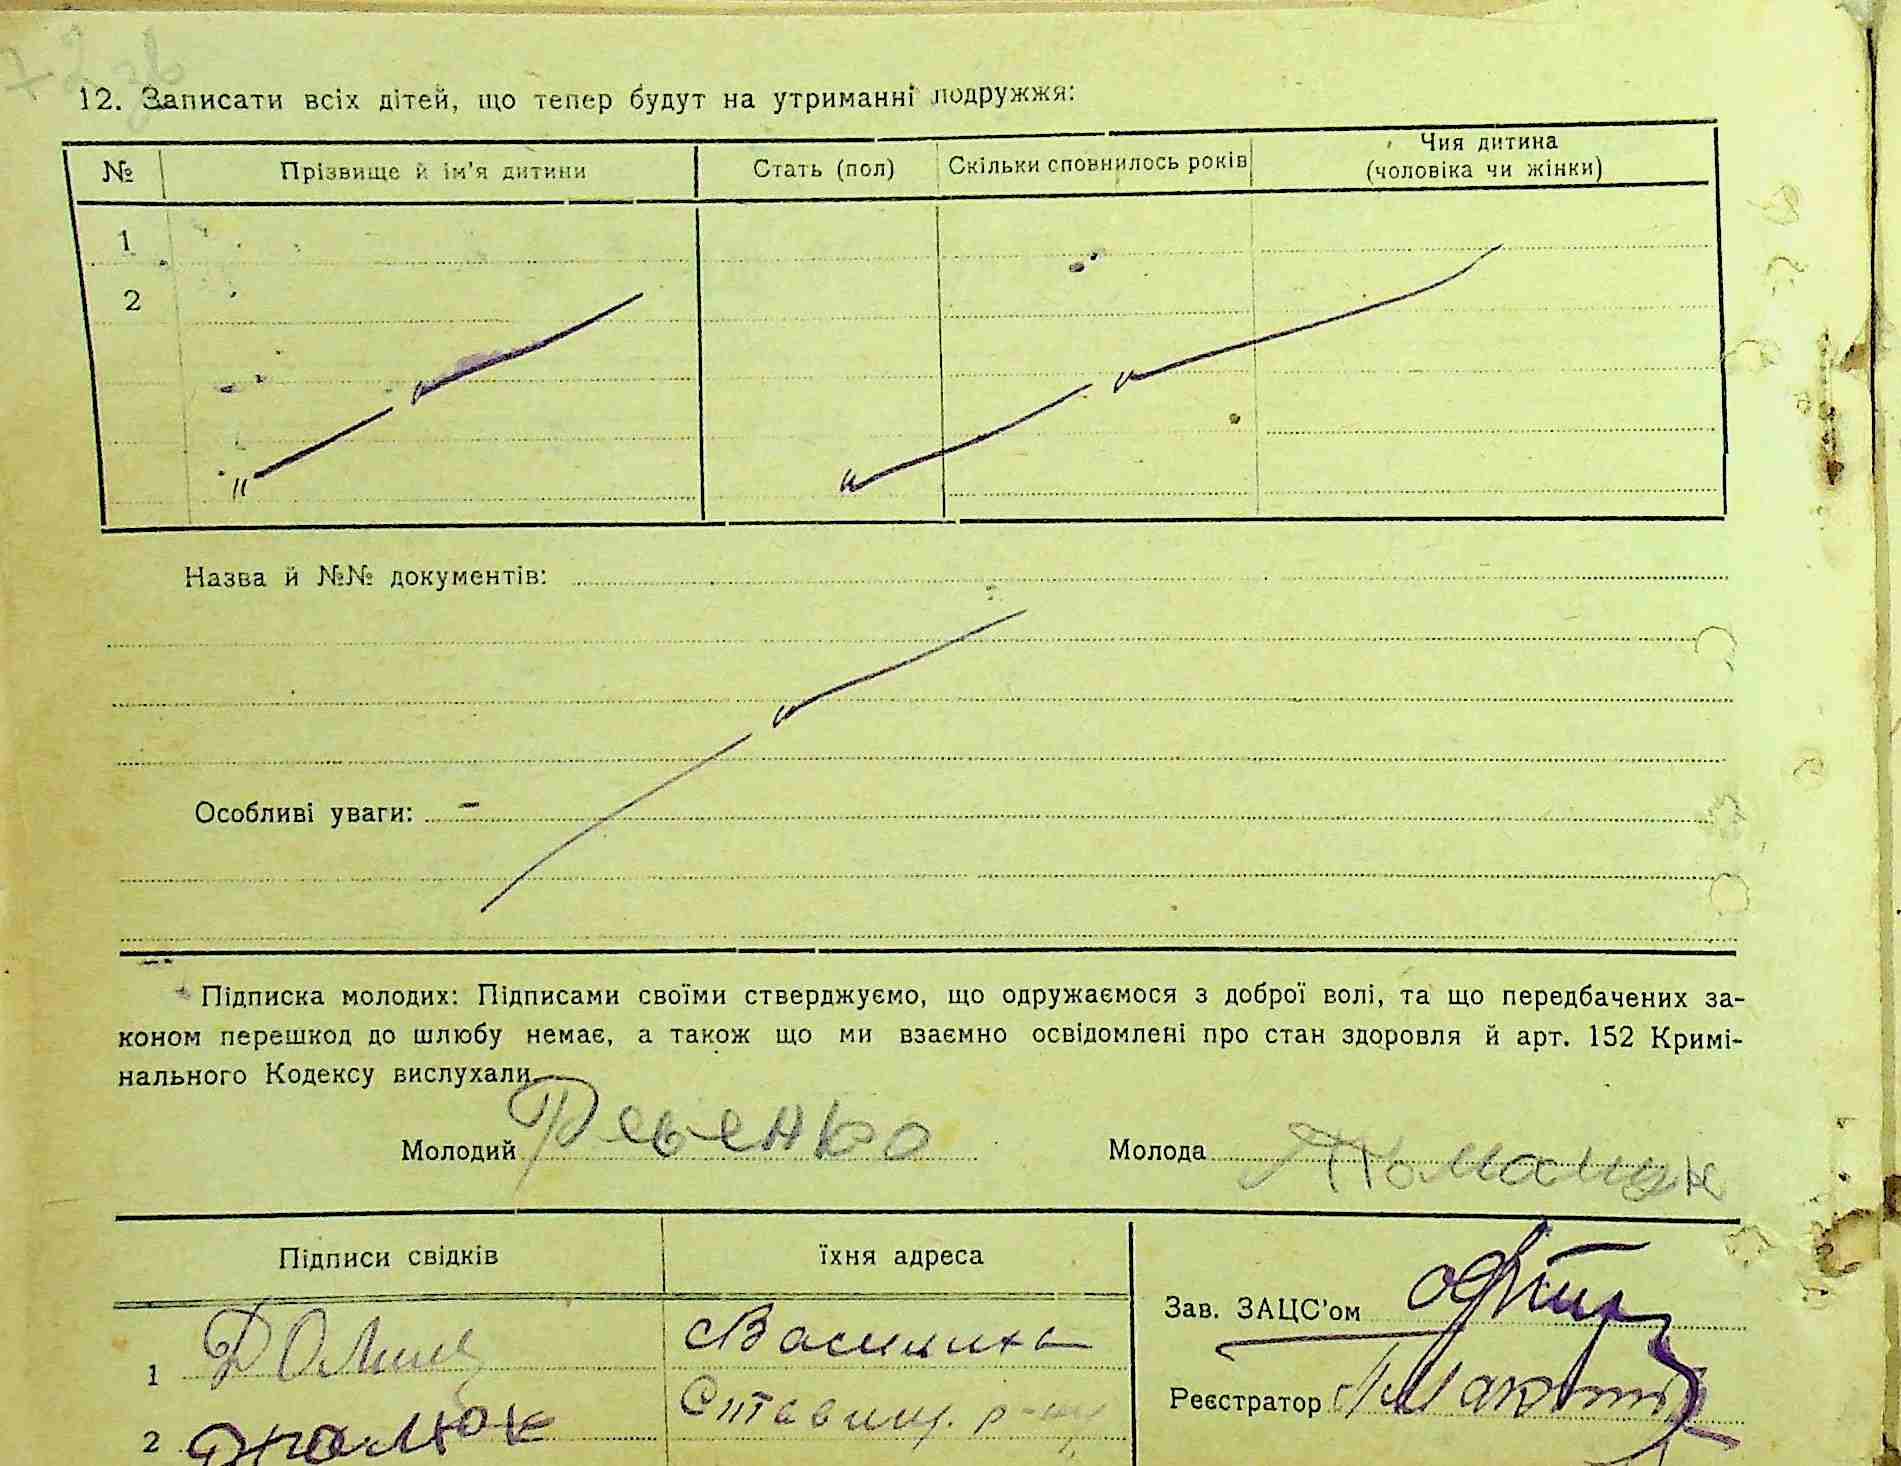 12. Записати всіх дітей, що тепер будут на утриманні подружжя:
№ Прізвище й ім'я дитини Стать (пол) Скільки сповнилось років Чия дитина (чоловіка чи жінки)
1
2
Назва й №№ документів:
Особливі уваги: –
Підписка молодих: Підписами своїми стверджуємо, що одружаємося з доброї волі, та що передбачених за-
коном перешкод до шлюбу немає, а також що ми взаємно освідомлені про стан здоровля й арт. 152 Кримі-
нального Кодексу вислухали.
Молодий Ревенко Молода
Підписи свідків їхня адреса
Зав. ЗАЦС'ом
1
Реєстратор
2 Ставищ. р-ну